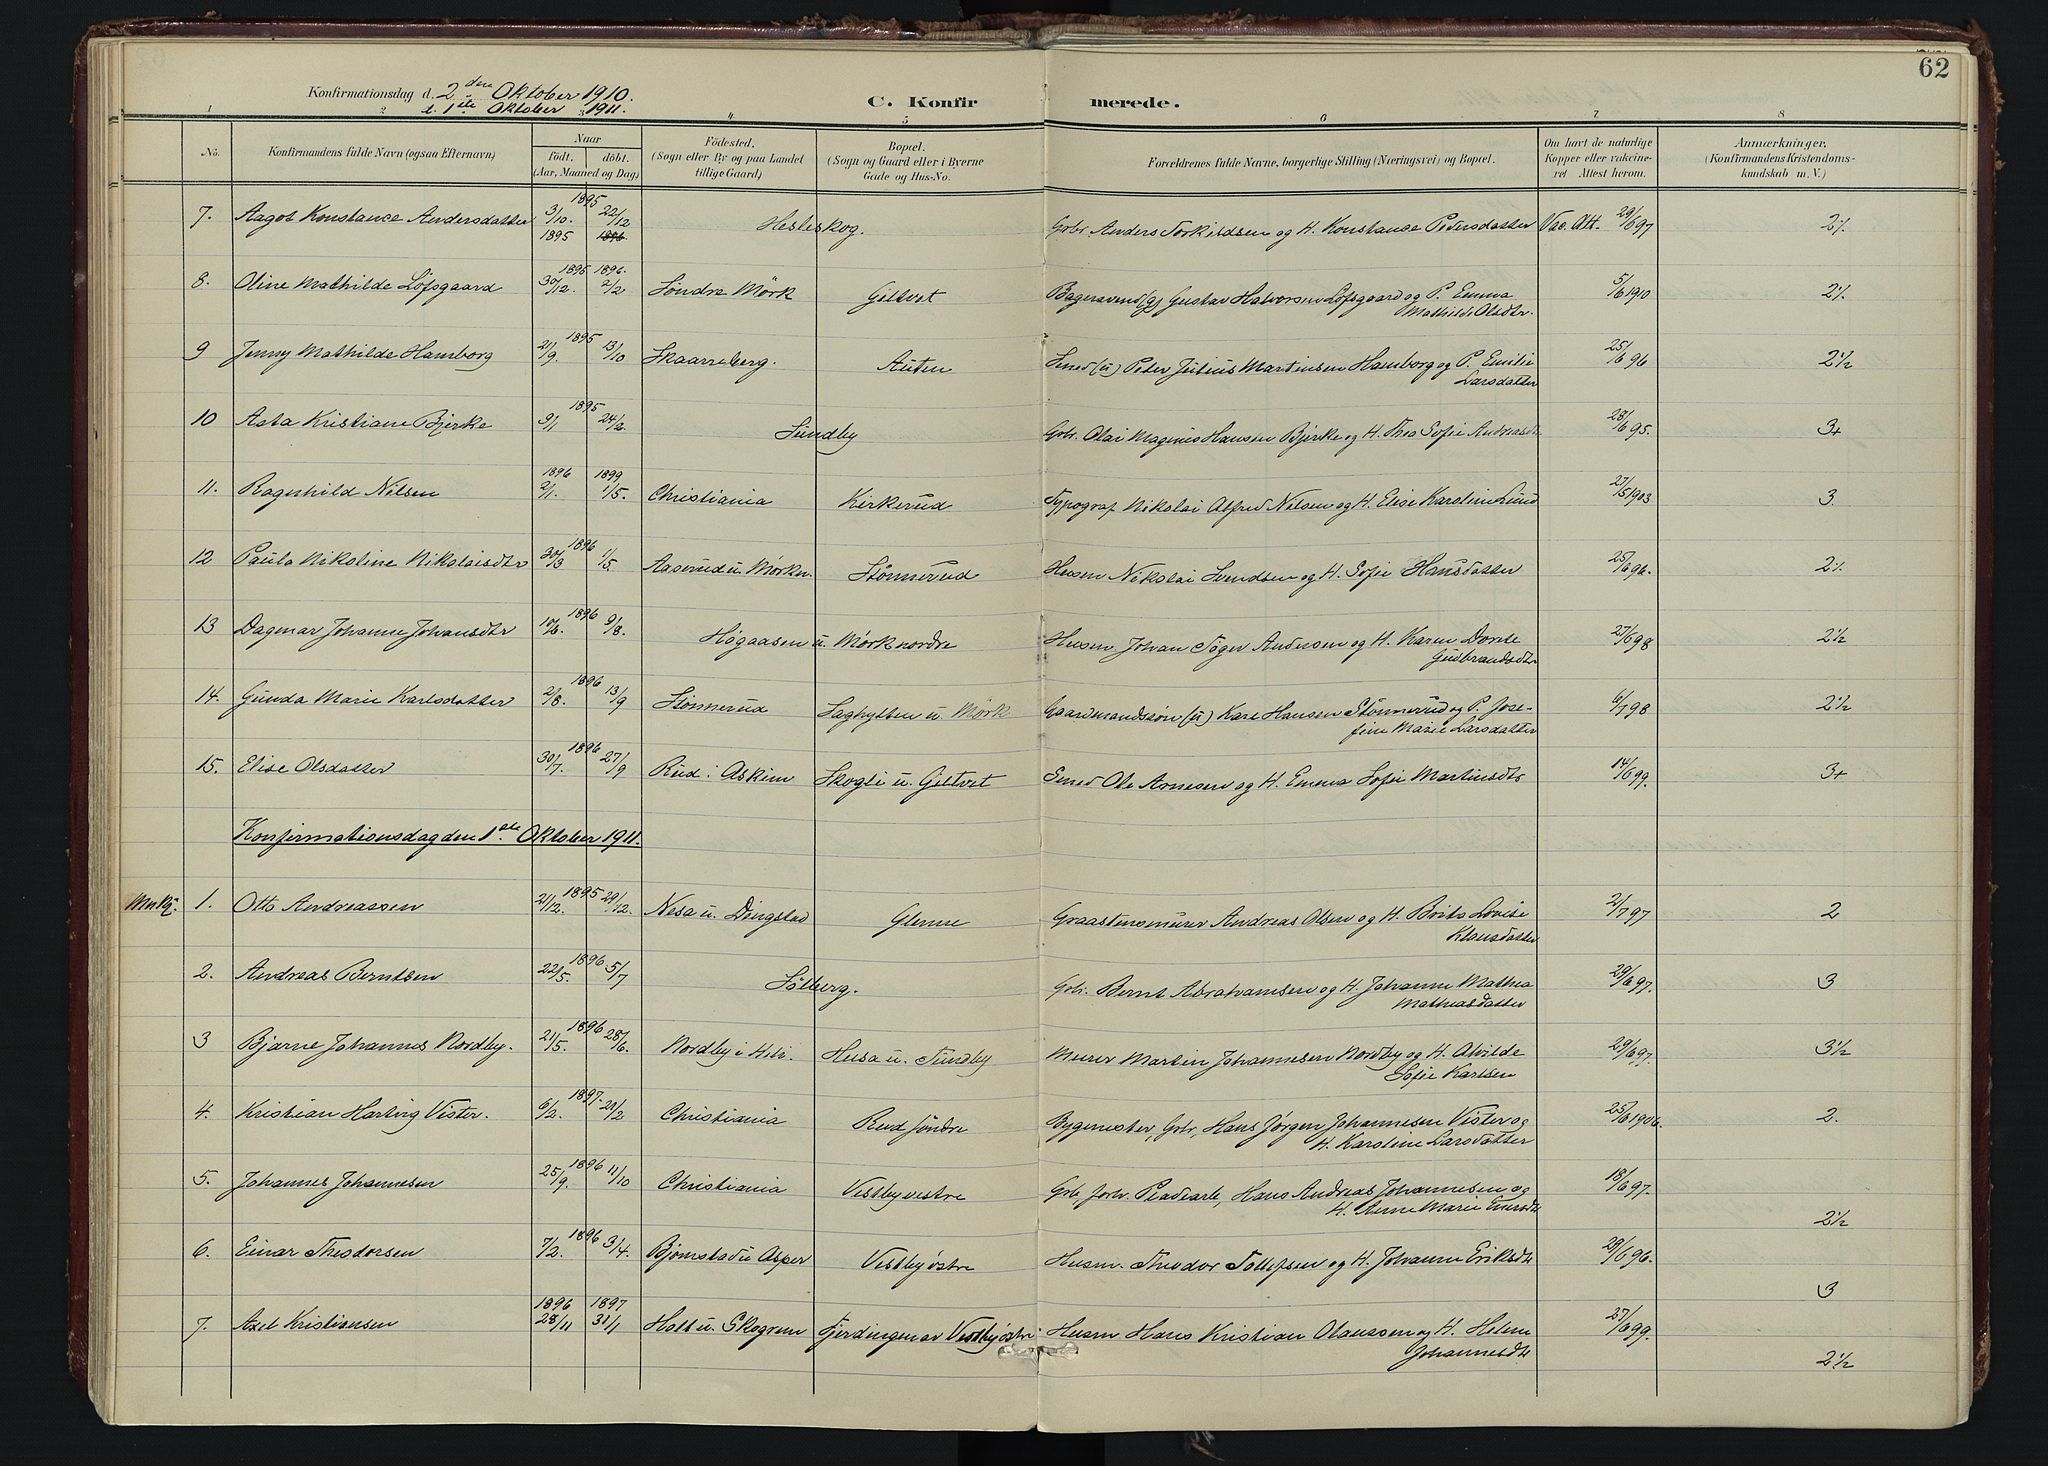 62
Konfirmationsdag d. 2den Oktober 1910.
d. 1ste Oktober 1911.
C. Konfirmerede.
1 2 3 4 5 6 7 8
No.
Konfirmandens fulde Navn (ogsaa Efternavn)
Naar
født. døbt.
(Aar, Maaned og Dag)
Fødested.
(Sogn eller By og paa Landet
tillige Gaard)
Bopæl.
(Sogn og Gaard eller i Byerne
Gade og Hus-No.
Forældrenes fulde Navne, borgerlige Stilling (Næringsvei) og Bopæl.
Om havt de naturlige
Kopper eller vakcine-
ret Attest herom.
Anmærkninger.
(Konfirmandens Kristendoms-
kundskab m. V.)
7. Aagot Konstance Andersdatter 3/10. 1895 1895 22/12 1896 Hesleskog. Gbr. Anders Torkildsen og H. Konstance Pedersdatter Vac. Att. 29/6 97 2 1/2
8. Oline Mathilde Löfsgaard 1895 30/12. 1896. 2/2 Søndre Mörk Giltvet Bagersvend (g) Gustav Halvorsen Löfsgaard og P. Emma
Mathilde Olsdtr. 5/6 1910 2 1/2
9 Jenny Mathilde Hamborg 21/9. 1895 13/10 Skaarreberg. Auten Smed (u) Peter Julius Martinsen Hamborg og P. Emilie
Larsdatter 25/6 96 2 1/2
10 Asta Kristiane Bjerke 9/1 1895 24/2 Sundby Gbr. Olai Magnus Hansen Bjerke og H. Thea Sofie Andreasdt 28/6 95. 3+
11. Ragnhild Nilsen 1896 2/1. 1899 1/5. Christiania Kirkerud Typograf Nikolai Alfred Nilsen og H. Elise Karoline Lund 27/5 1903 3.
12 Paula Nikoline Nikolaisdtr 30/3 1896 1/5. Aaserud u. Mörkn. Stønnerud Husm Nikolai Svendsen og H. Sofie Hansdatter 25/6 96. 2 1/2
13 Dagmar Johanne Johansdtr 10/6. 1896 9/8. Högaasen u. Mörk nordre Husm Johan Töger Andersen og H. Karen Dorte
Gudbrandsdtr 27/6 98 2 1/2
14. Gunda Marie Karlsdatter 2/8. 1896 13/9 Stønnerud Saghytten u. Mörk Gaardmandssøn (u) Karl Hansen Stönnerud og P. Jose-
fine Marie Larsdatter 6/7 98 2 1/2
15. Elise Olsdatter 30/7. 1896 27/9 Rud i Askim Skogli u. Giltvet Smed Ole Arnesen og H. Emma Sofie Martinsdtr 14/6 99. 3+
Konfirmationsdag den 1ste Oktober 1911.
1. Otto Andreassen 21/12. 1895 29/12. Nesa u. Dingstad Glenne Graastensmurer Andreas Olsen og H. Brite Lovise
Klausdatter 2/7 97 2
2. Andreas Berntsen 22/5. 1896 5/7 Sölberg. Gbr. Bernt Abrahamsen og H. Johanne Mathea
Mathiasdatter 29/6 97. 3
3 Bjarne Johannes Nordby. 21/5. 1896 28/6. Nordby i Husa u. Sundby Murer Martin Johannesen Nordby og H. Alvilde
Sofie Karlsen 29/6 97. 3 1/2
4. Kristian Hartvig Vister. 6/2. 1897. 21/2 Christiania Rud Søndre Bygmester, Gbr, Hans Jørgen Johannesen Vister og
H. Karoline Larsdatter 25/6 1906. 2.
5. Johannes Johannesen 25/9. 1896 11/10 Christiania Vestby vestre Gbr, forhv. Hans Andreas Johannesen og
H. Anne Marie 18/6 97. 2 1/2
6. Einar Theodorsen 7/2. 1896 3/4. Bjørnstad u Asper Vestby östre Husm. Theodor Tollefsen og H. Johanne Eriksdt 29/6 96. 3
7. Axel Kristiansen 1896 28/11 1897 31/1 Holt u. Skogrum Fjerdingen av Vestby östre Husm Hans Kristian Olaussen og H. Helene
Johannesdt 27/6 99. 2 1/2